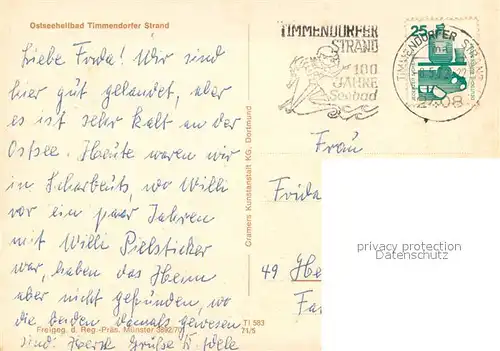 Ostseeheilbad Timmendorfer Strand
Liebe Frida! Wir sind
hier gut gelandet, aber
es ist sehr kalt an der
Ostsee. Heute waren wir
in Scharbeutz, wo Willi
vor ein paar Jahren
mit Willi Pielsticker
war, haben das Heim
aber nicht gefunden, wo
die beiden damals gewesen
sind. Herzl. Grüße
Freigeg. d. Reg.-Präs. Münster 3892/70
TI 583
71/5
Cramers Kunstanstalt KG, Dortmund
TIMMENDORFER
STRAND
100
JAHRE
Seebad
25
TIMMENDORFER STRAND
2408
Frau
Frida
49 He
privacy protection
Datenschutz